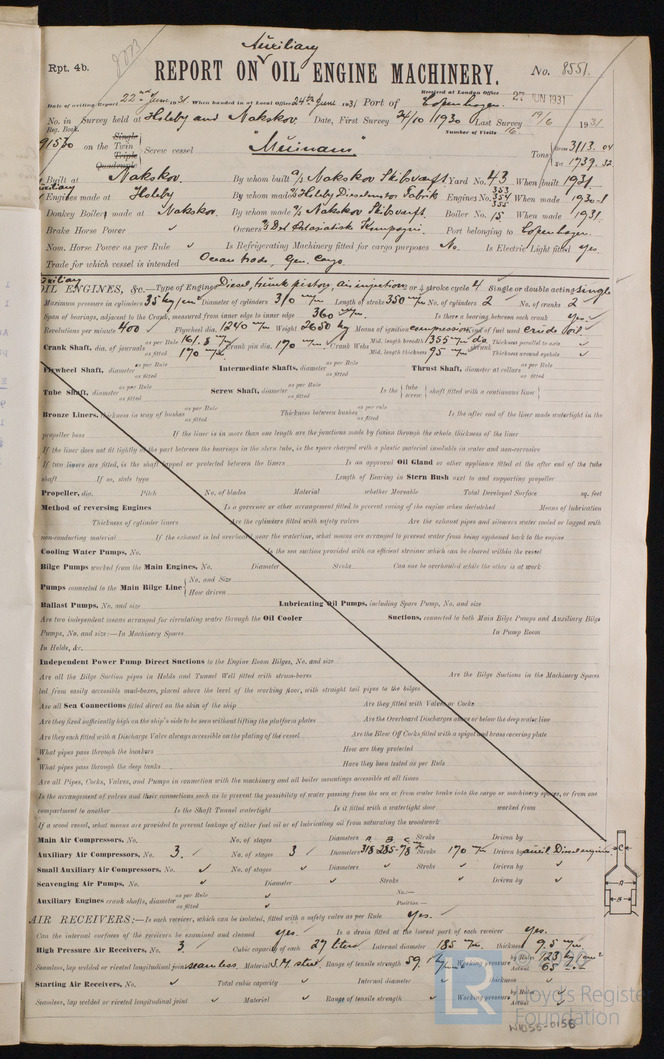 Rpt. 4b.
Auxiliary
REPORT ON OIL ENGINE MACHINERY.
No. 8551.
Received at London Office 27 JUN 1931
Date of writing Report 22nd June 1931 When handed in at Local Office 24th June 1931 Port of Copenhagen.
No. in Survey held at Holeby and Nakskov. Date, First Survey 24/10 1930 Last Survey 19/6 1931
Reg. Book. Number of Visits 16
91570 on the Single Twin Triple Quadruple Screw vessel "Meinam" Tons Gross 3113.04 Net 1739.32
Built at Nakskov By whom built A/S Nakskov Skibsværft Yard No. 43 When built 1931.
Auxiliary Engines made at Holeby By whom made A/S Holeby Dieselmotor Fabrik Engines Nos. 353 354 355 When made 1930-1
Donkey Boilers made at Nakskov. By whom made A/S Nakskov Skibsværft. Boiler No. 15 When made 1931.
Brake Horse Power ✓ Owners A/S Det Østasiatiske Kompagni. Port belonging to Copenhagen.
Nom. Horse Power as per Rule ✓ Is Refrigerating Machinery fitted for cargo purposes No. Is Electric Light fitted Yes.
Trade for which vessel is intended Ocean trade, Gen. Cargo.
Auxiliary
OIL ENGINES, &c.—Type of Engines Diesel, trunk piston, air injection 2 or 4 stroke cycle 4 Single or double acting Single
Maximum pressure in cylinders 35 kg/cm² Diameter of cylinders 310 m/m Length of stroke 350 m/m No. of cylinders 2 No. of cranks 2
Span of bearings, adjacent to the Crank, measured from inner edge to inner edge 360 m/m Is there a bearing between each crank Yes.
Revolutions per minute 400 Flywheel dia. 1240 m/m Weight 2650 kg Means of ignition compression Kind of fuel used crude oil.
Crank Shaft, dia. of journals as per Rule 161.8 m/m as fitted 170 m/m Crank pin dia. 170 m/m Crank Webs Mid. length breadth 355 m/m dia Mid. length thickness 95 m/m Thickness parallel to axis ✓ Thickness around eyehole ✓
Flywheel Shaft, diameter as per Rule as fitted Intermediate Shafts, diameter as per Rule as fitted Thrust Shaft, diameter at collars as per Rule as fitted
Tube Shaft, diameter as per Rule as fitted Screw Shaft, diameter as per Rule as fitted Is the tube screw shaft fitted with a continuous liner
Bronze Liners, thickness in way of bushes as per Rule as fitted Thickness between bushes as per rule as fitted Is the after end of the liner made watertight in the
propeller boss If the liner is in more than one length are the junctions made by fusion through the whole thickness of the liner
If the liner does not fit tightly at the part between the bearings in the stern tube, is the space charged with a plastic material insoluble in water and non-corrosive
If two liners are fitted, is the shaft lapped or protected between the liners Is an approved Oil Gland or other appliance fitted at the after end of the tube
shaft If so, state type Length of Bearing in Stern Bush next to and supporting propeller
Propeller, dia. Pitch No. of blades Material whether Moveable Total Developed Surface sq. feet
Method of reversing Engines Is a governor or other arrangement fitted to prevent racing of the engine when declutched Means of lubrication
Thickness of cylinder liners Are the cylinders fitted with safety valves Are the exhaust pipes and silencers water cooled or lagged with
non-conducting material If the exhaust is led overboard near the waterline, what means are arranged to prevent water from being syphoned back to the engine
Cooling Water Pumps, No. Is the sea suction provided with an efficient strainer which can be cleared within the vessel
Bilge Pumps worked from the Main Engines, No. Diameter Stroke Can one be overhauled while the other is at work
Pumps connected to the Main Bilge Line No. and Size
How driven
Ballast Pumps, No. and size Lubricating Oil Pumps, including Spare Pump, No. and size
Are two independent means arranged for circulating water through the Oil Cooler Suctions, connected to both Main Bilge Pumps and Auxiliary Bilge
Pumps, No. and size:—In Machinery Spaces In Pump Room
In Holds, &c.
Independent Power Pump Direct Suctions to the Engine Room Bilges, No. and size
Are all the Bilge Suction pipes in Holds and Tunnel Well fitted with strum-boxes Are the Bilge Suctions in the Machinery Spaces
led from easily accessible mud-boxes, placed above the level of the working floor, with straight tail pipes to the bilges
Are all Sea Connections fitted direct on the skin of the ship Are they fitted with Valves or Cocks
Are they fixed sufficiently high on the ship's side to be seen without lifting the platform plates Are the Overboard Discharges above or below the deep water line
Are they each fitted with a Discharge Valve always accessible on the plating of the vessel Are the Blow Off Cocks fitted with a spigot and brass covering plate
What pipes pass through the bunkers How are they protected
What pipes pass through the deep tanks Have they been tested as per Rule
Are all Pipes, Cocks, Valves, and Pumps in connection with the machinery and all boiler mountings accessible at all times
Is the arrangement of valves and their connections such as to prevent the possibility of water passing from the sea or from water tanks into the cargo or machinery spaces, or from one
compartment to another Is the Shaft Tunnel watertight Is it fitted with a watertight door worked from
If a wood vessel, what means are provided to prevent leakage of either fuel oil or of lubricating oil from saturating the woodwork
Main Air Compressors, No. No. of stages Diameters A B C Stroke Driven by
Auxiliary Air Compressors, No. 3. No. of stages 3 Diameters 318-285-78 m/m Stroke 170 m/m Driven by auxil Diesel engine.
Small Auxiliary Air Compressors, No. ✓ No. of stages ✓ Diameters ✓ Stroke ✓ Driven by ✓
Scavenging Air Pumps, No. ✓ Diameter ✓ Stroke ✓ Driven by ✓
Auxiliary Engines crank shafts, diameter as per Rule ✓ as fitted ✓ No.— Position—
AIR RECEIVERS:—Is each receiver, which can be isolated, fitted with a safety valve as per Rule Yes.
Can the internal surfaces of the receivers be examined and cleaned Yes. Is a drain fitted at the lowest part of each receiver Yes.
High Pressure Air Receivers, No. 3 Cubic capacity of each 27 liter. Internal diameter 185 m/m. thickness 9.5 m/m.
Seamless, lap welded or riveted longitudinal joint seamless. Material S.M. steel Range of tensile strength 59. Working pressure by Rules 123 kg/cm² Actual 65
Starting Air Receivers, No. ✓ Total cubic capacity ✓ Internal diameter ✓ thickness ✓
Seamless, lap welded or riveted longitudinal joint ✓ Material ✓ Range of tensile strength ✓ Working pressure by Rules ✓ Actual ✓
C
A
B
LR
© 2021
Lloyd's Register
Foundation
W1055-0156